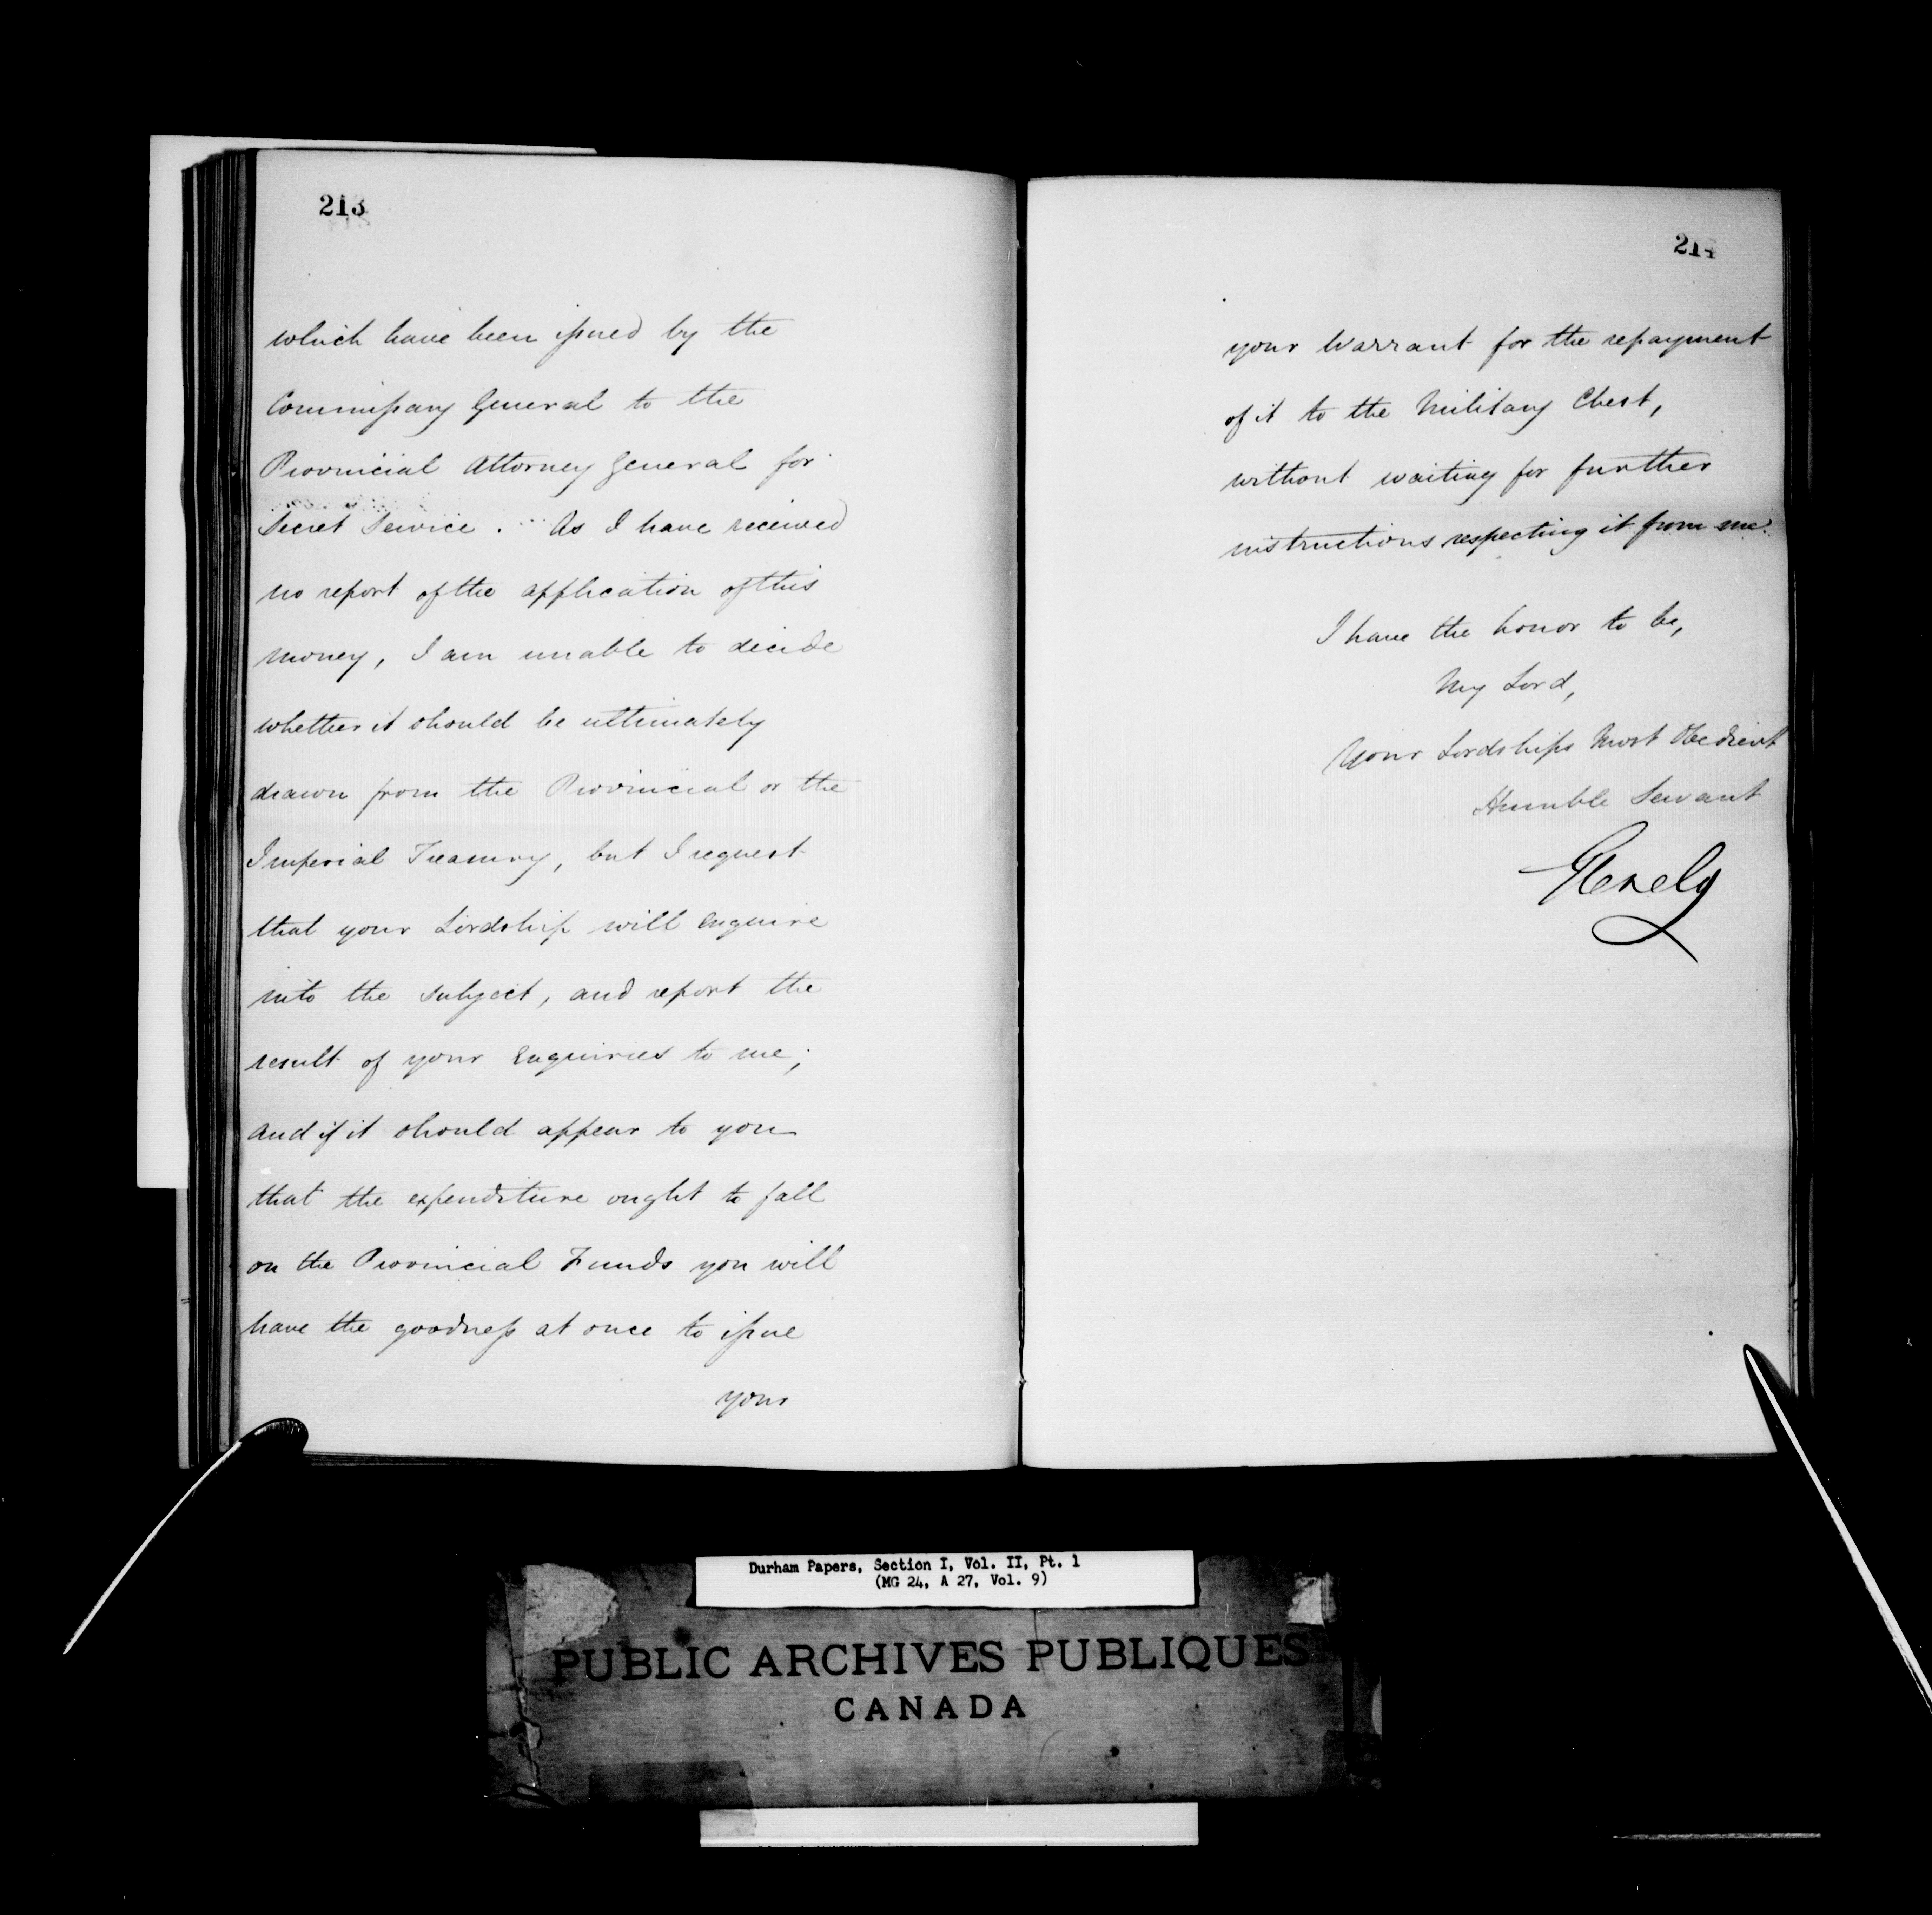 213
which have been issued by the
Commissary General to the
Provincial Attorney General for
Secret Service. As I have received
no report of the application of this
money, I am unable to decide
whether it should be ultimately
drawn from the Provincial or the
Imperial Treasury, but I request
that your Lordship will enquire
into the subject, and report the
result of your Enquiries to me;
and if it should appear to you
that the expenditure ought to fall
on the Provincial Funds you will
have the goodness at once to issue
your
214
your Warrant for the repayment
of it to the Military Chest,
without waiting for further
instructions respecting it from me.
I have the honor to be,
My Lord,
Your Lordships Most Obedient
Humble Servant
Glenelg
Durham Papers, Section I, Vol. II, Pt. 1
(MG 24, A 27, Vol. 9)
PUBLIC ARCHIVES PUBLIQUES
CANADA